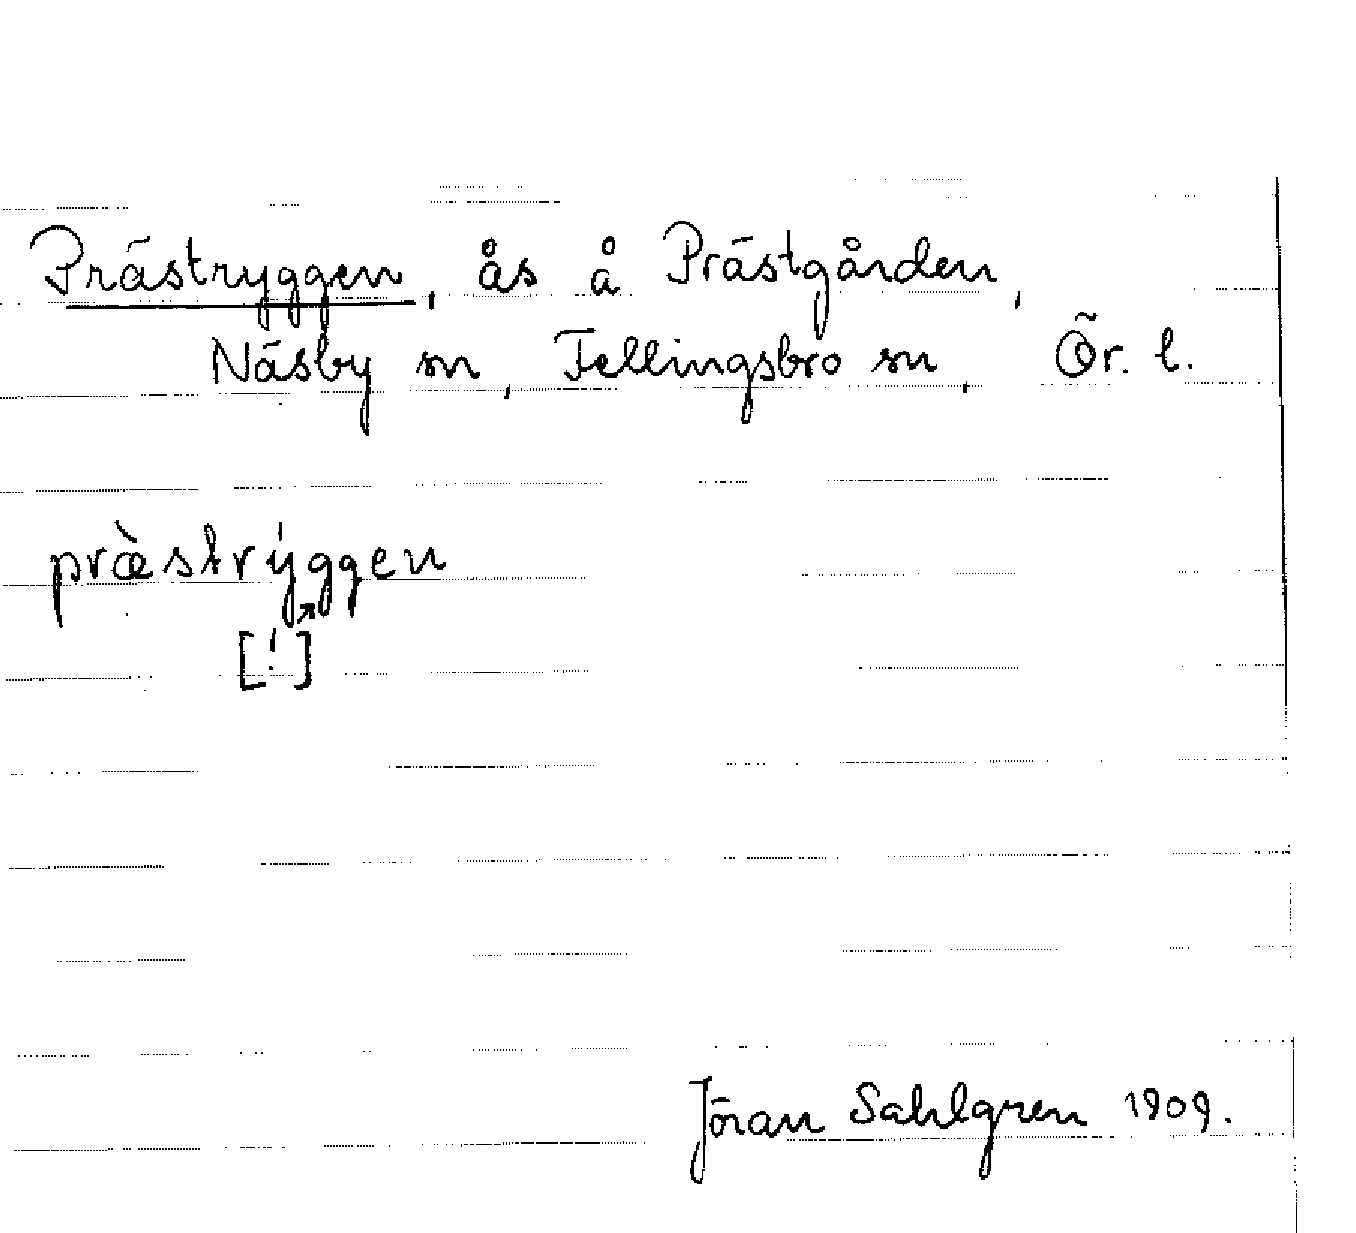 Prästryggen, ås å Prästgården,
Näsby sn, Fellingsbro sn, Ör. l.
præ̀strýggen
[!]
Jöran Sahlgren 1909.